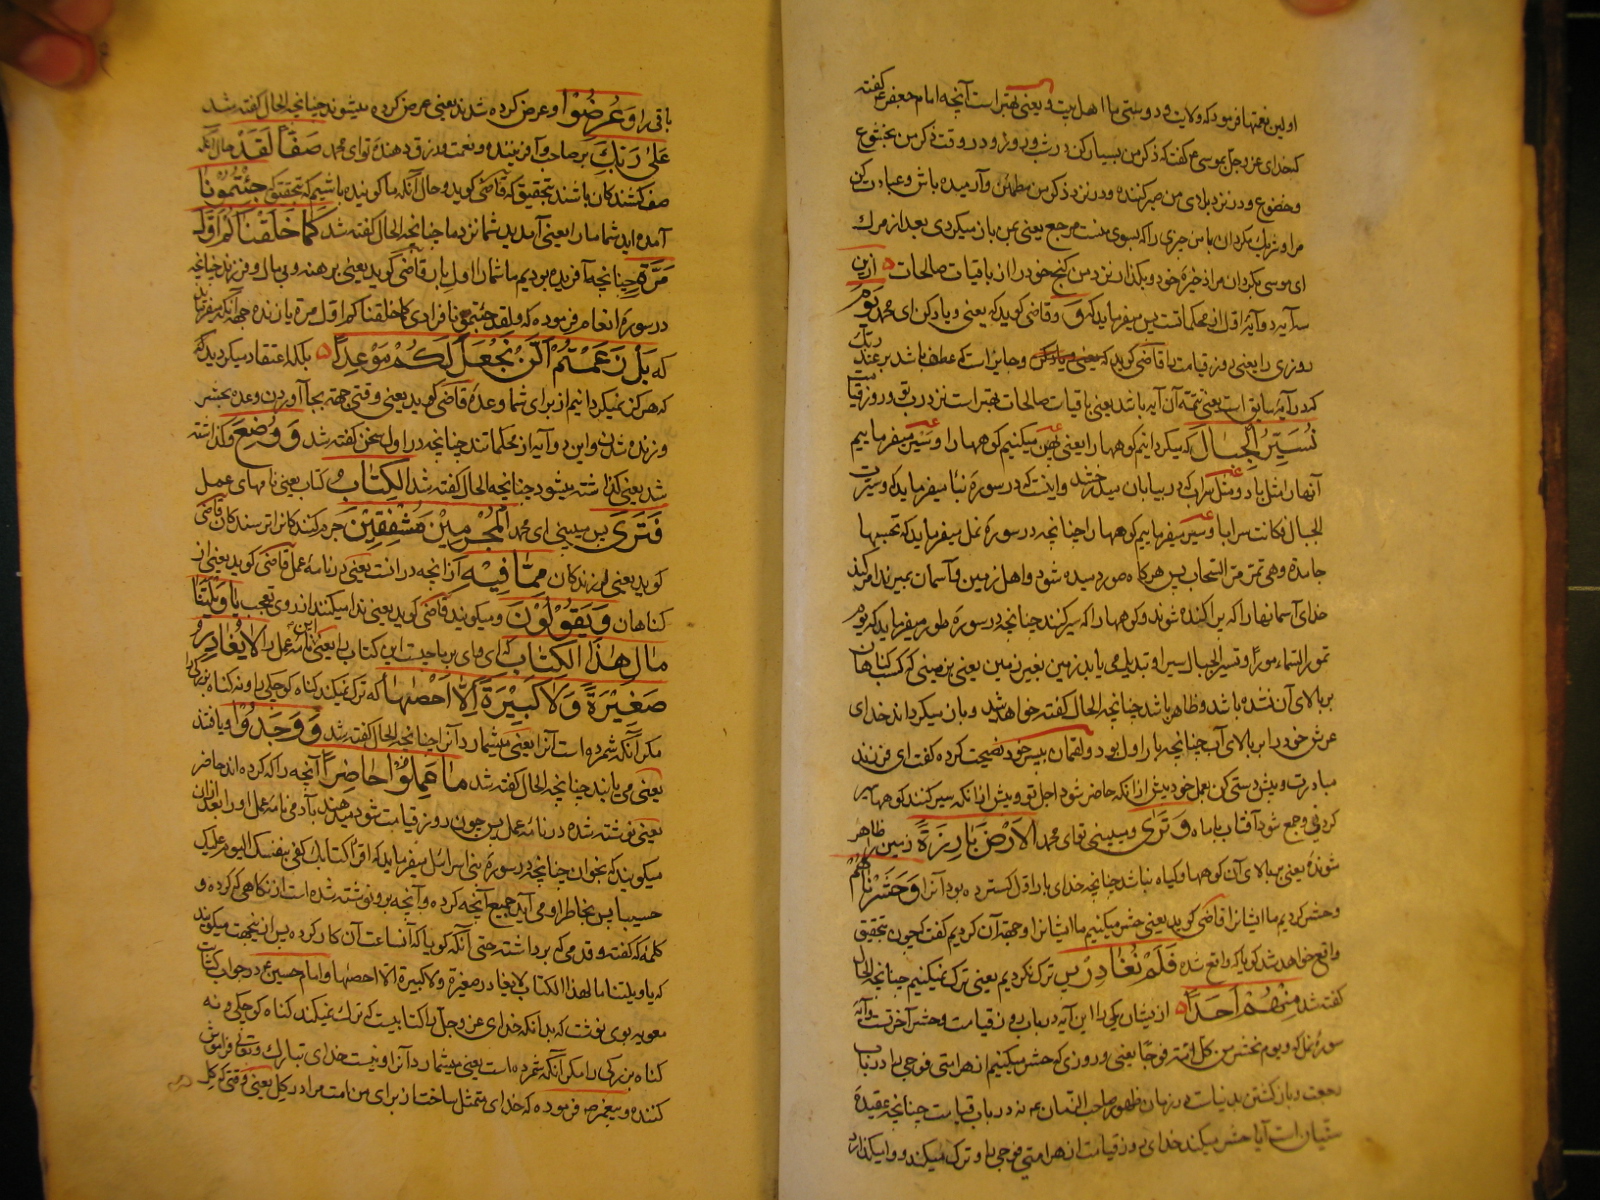 اولین نعمتها فرمود که ولایت و دوستی ما اهل بیت و یعنی بهتر است آنچه امام جعفر ع گفته
که خدای عز و جل بموسی ع گفته که ذکر من بسیار کن در شب و روز و در وقت ذکر من بخشوع
و خضوع و در نزد بلای من صبر کننده و در نزد ذکر من مطمئن و آرمیده باش و عبادت کن
مرا و شریک مگردان با من چیزی را که بسوی منست مرجع یعنی بمن باز میگردی بعد از مرگ
ای موسی بگردان مرا ذخیره خود و بگذار نزد من گنج خود را از باقیات صالحات ازین
سه آیه دو آیه اول از محکماتست پس میفرماید که و و قاضی گوید که یعنی و یاد کن ای محمد یَوْمَ
روزی را یعنی روز قیامت را قاضی گوید که و جایز است که عطف باشد بر عند ربک
که در آیهٔ سابق است یعنی تتمه آن آیه باشد یعنی باقیات صالحات بهتر است نزد رب تو و روز قیامت
نُسَیِّرُ الْجِبَالَ که میگردانیم کوهها را یعنی پهن میکنیم کوهها را و سیر میفرماییم
آنها را مثل باد و مثل سراب که در بیابان میدرخشد و اینست که در سورهٔ نبا میفرماید که و سیرت
الجبال فکانت سرابا و سیر میفرماییم کوهها را چنانچه در سورهٔ نمل میفرماید که تحسبها
جامدة وهی تمر مر السحاب پس هرگاه صور دمیده شود و اهل زمین و آسمان بمیرند امر کند
خدای آسمانها را که پراکنده شوند و کوهها را که سیر کنند چنانچه در سورهٔ طور میفرماید که یوم
تمور السماء مورا و تسیر الجبال سیرا و تبدیل می یابد زمین بغیر زمین یعنی بزمینی که کسب گناهان
بر بالای آن نشده باشد و ظاهر باشد چنانچه الحال گفته خواهد شد و باز میگرداند خدای
عرش خود را بر بالای آب چنانچه بار اول بود و لقمان بپسر خود نصیحت کرده گفت ای فرزند
مبادرت و پیش دستی کن بعمل خود پیش از آنکه حاضر شود اجل تو و پیش از آنکه سیر کنند کوهها سیر
کردنی و جمع شود آفتاب با ماه وَتَرَی و میبینی تو ای محمد الْاَرْضَ بَارِزَةً زمین را ظاهر
شونده یعنی ببالای آن کوهها و گیاه نباشد چنانچه خدای بار اول گسترده بود آنرا وَحَشَرْنَاهُمْ
و حشر کردیم ما ایشانرا قاضی گوید یعنی حشر میکنیم ما ایشانرا و جهة آن کردیم گفت که چون تحقق
واقع خواهد شد گویا که واقع شده فَلَمْ نُغَادِرْ پس ترک نکردیم یعنی ترک نمیکنیم چنانچه الحال
گفته شد مِنْهُمْ اَحَدًا از ایشان یکی را این آیه در باب روز قیامت و حشر آخرتست و آیهٔ
سورهٔ نمل که و یوم نحشر من کل امة فوجا یعنی و روزی که حشر میکنیم از هر امتی فوجی را در باب
رجعت و باز گشتن بدنیاست در زمان ظهور صاحب الزمان ع نه در باب قیامت چنانچه عقیدهٔ
سنیان است آیا حشر میکند خدای روز قیامت از هر امتی فوجی را و ترک میکند و وا میگذارد
باقی را وَعُرِضُوْا و عرض کرده شدند یعنی عرض کرده میشوند چنانچه الحال گفته شد
عَلٰی رَبِّکَ بر صاحب و آفریننده و نعمت و رزق دهندهٔ تو ای محمد صَفًّا لَقَدْ حال آنکه
صف کشندکان باشند بتحقیق که قاضی گوید و حال آنکه ما گوینده باشیم که بتحقیق که جِئْتُمُوْنَا
آمده اید شما ما را یعنی آمدید شما نزد ما چنانچه الحال گفته شد کَمَا خَلَقْنَاکُمْ اَوَّلَ
مَرَّةٍ چنانچه آفریده بودیم ما شما را اول بار قاضی گوید یعنی برهنه و بی مال و فرزند چنانچه
در سورهٔ انعام فرموده که و لقد جئتمونا فرادی کما خلقناکم اول مرة یا زنده جهة آنکه میفرماید
که بَلْ زَعَمْتُمْ اَلَّنْ نَجْعَلَ لَکُمْ مَوْعِدًا بلکه اعتقاد میکردید که
که هرگز نمیگردانیم از برای شما وعدهٔ قاضی گوید یعنی وقتی جهت بجا آوردن وعده بحشر
و زنده شدن و این دو آیه از محکماتند چنانچه در اول سخن گفته شد وَوُضِعَ و گذاشته
شد یعنی گذاشته میشود چنانچه الحال گفته شد الْکِتَابُ کتاب یعنی نامهای عمل
فَتَرَی پس میبینی ای محمد الْمُجْرِمِیْنَ مُشْفِقِیْنَ جرم کنندکانرا ترسندکان قاضی
گوید یعنی لرزندکان مِمَّا فِیْهِ از آنچه در انست یعنی در نامهٔ عمل قاضی گوید یعنی از
گناهان وَیَقُوْلُوْنَ و میگویند قاضی گوید یعنی ندا میکنند از روی تعجب یَا وَیْلَتَنَا
مَالِ هٰذَا الْکِتَابِ که ای وای بر ما چیست این کتاب را یعنی این نامهٔ عمل را لَا یُغَادِرُ
صَغِیْرَةً وَلَا کَبِیْرَةً اِلَّا اَحْصٰهَا که ترک نمیکند گناه کوچکی را و نه گناه بزرگی را
مگر آنکه شمرده است آنرا یعنی میشمارد آنرا چنانچه الحال گفته شد وَوَجَدُوْا و یافتند
یعنی می یابند چنانچه الحال گفته شد مَا عَمِلُوْا حَاضِرًا آنچه را که کرده اند حاضر
یعنی نوشته شده در نامهٔ عمل پس چون روز قیامت شود میدهند بآدمی نامهٔ عمل او را بعد از ان
میگویند که بخوان چنانچه در سورهٔ بنی اسرائیل میفرماید که اقرا کتابک کفی بنفسک الیوم علیک
حسیبا پس بخاطر او می آید جمیع آنچه کرده و آنچه برو نوشته شده است از نگاهی که کرده و
کلمهٔ که گفته و قدمی که برداشته حتی آنکه گویا که آنساعت آن کار کرده پس ازینجهت میگویند
که یا ویلتنا ما لهذا الکتاب لا یغادر صغیرة ولا کبیرة الا احصیها و امام حسین ع در جواب کتاب
معویه بوی نوشت که بدانکه خدای عز و جل را کتابیست که ترک نمیکند گناه کوچکی و نه
گناه بزرگی را مگر آنکه شمرده است یعنی میشمارد آنرا و نیست خدای تبارک و تعالی فراموش
کننده و پیغمبر ص فرموده که خدای متمثل ساخت از برای من امت مرا در گل یعنی وقتی که گل